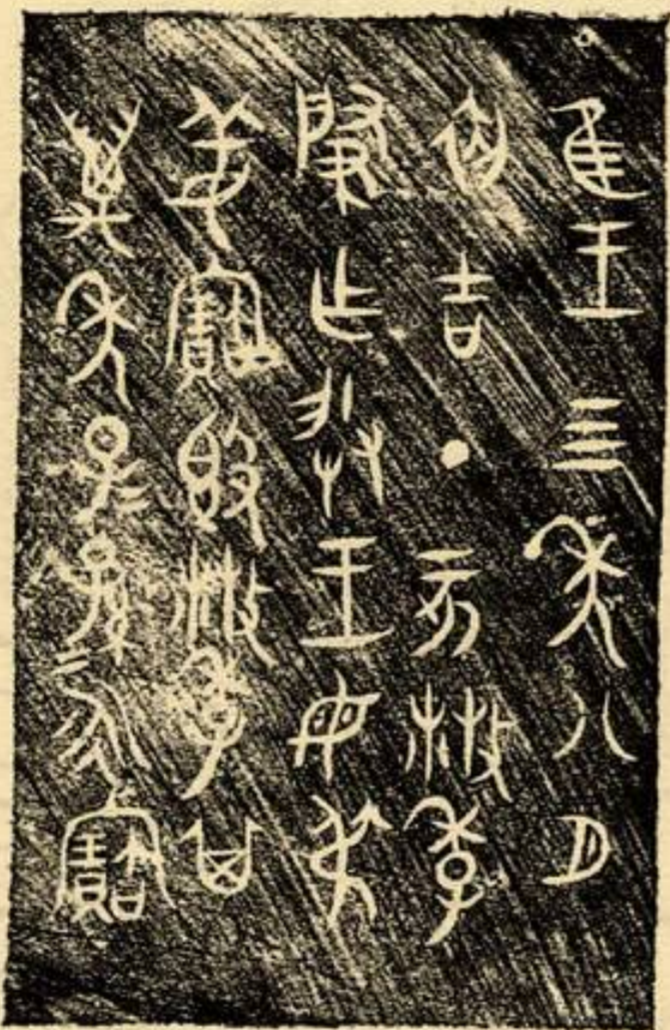 隹王四年八月
初吉丁亥散季
肇乍朕王母弔
姜寶𣪘散季其
萬年子孫永寶